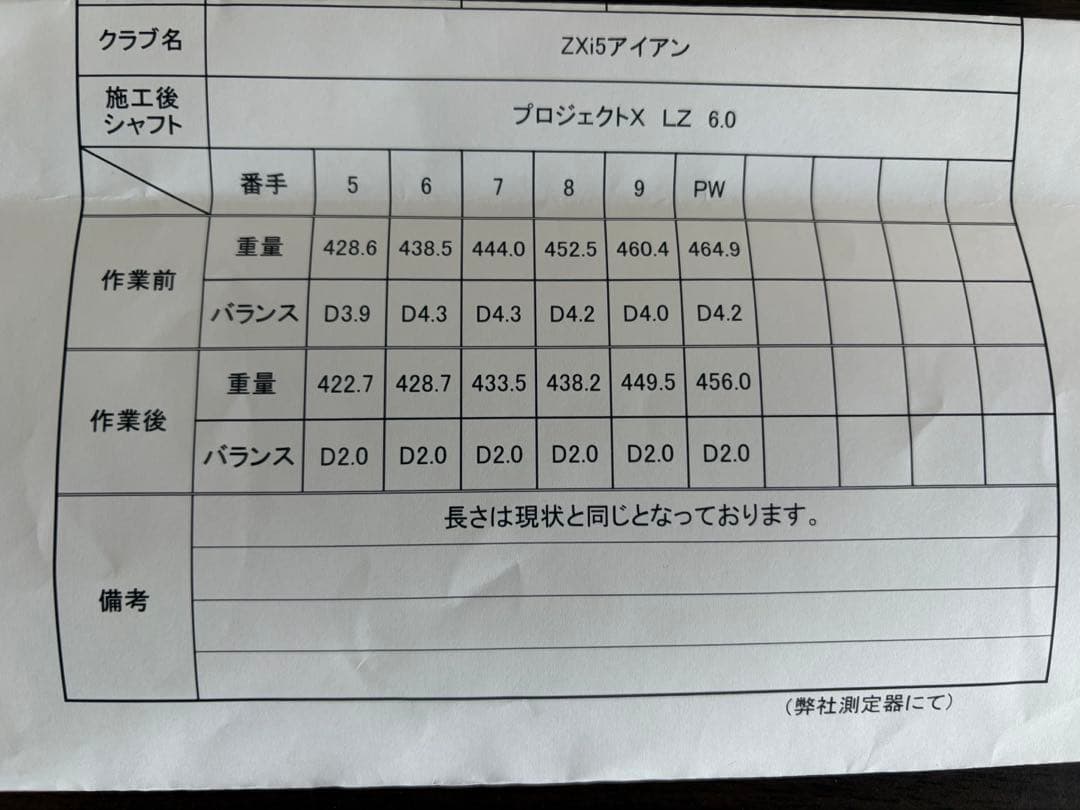 クラブ名 ZXi5アイアン
施工後
シャフト プロジェクトX LZ 6.0
番手 5 6 7 8 9 PW
作業前 重量 428.6 438.5 444.0 452.5 460.4 464.9
バランス D3.9 D4.3 D4.3 D4.2 D4.0 D4.2
作業後 重量 422.7 428.7 433.5 438.2 449.5 456.0
バランス D2.0 D2.0 D2.0 D2.0 D2.0 D2.0
備考 長さは現状と同じとなっております。
(弊社測定器にて)